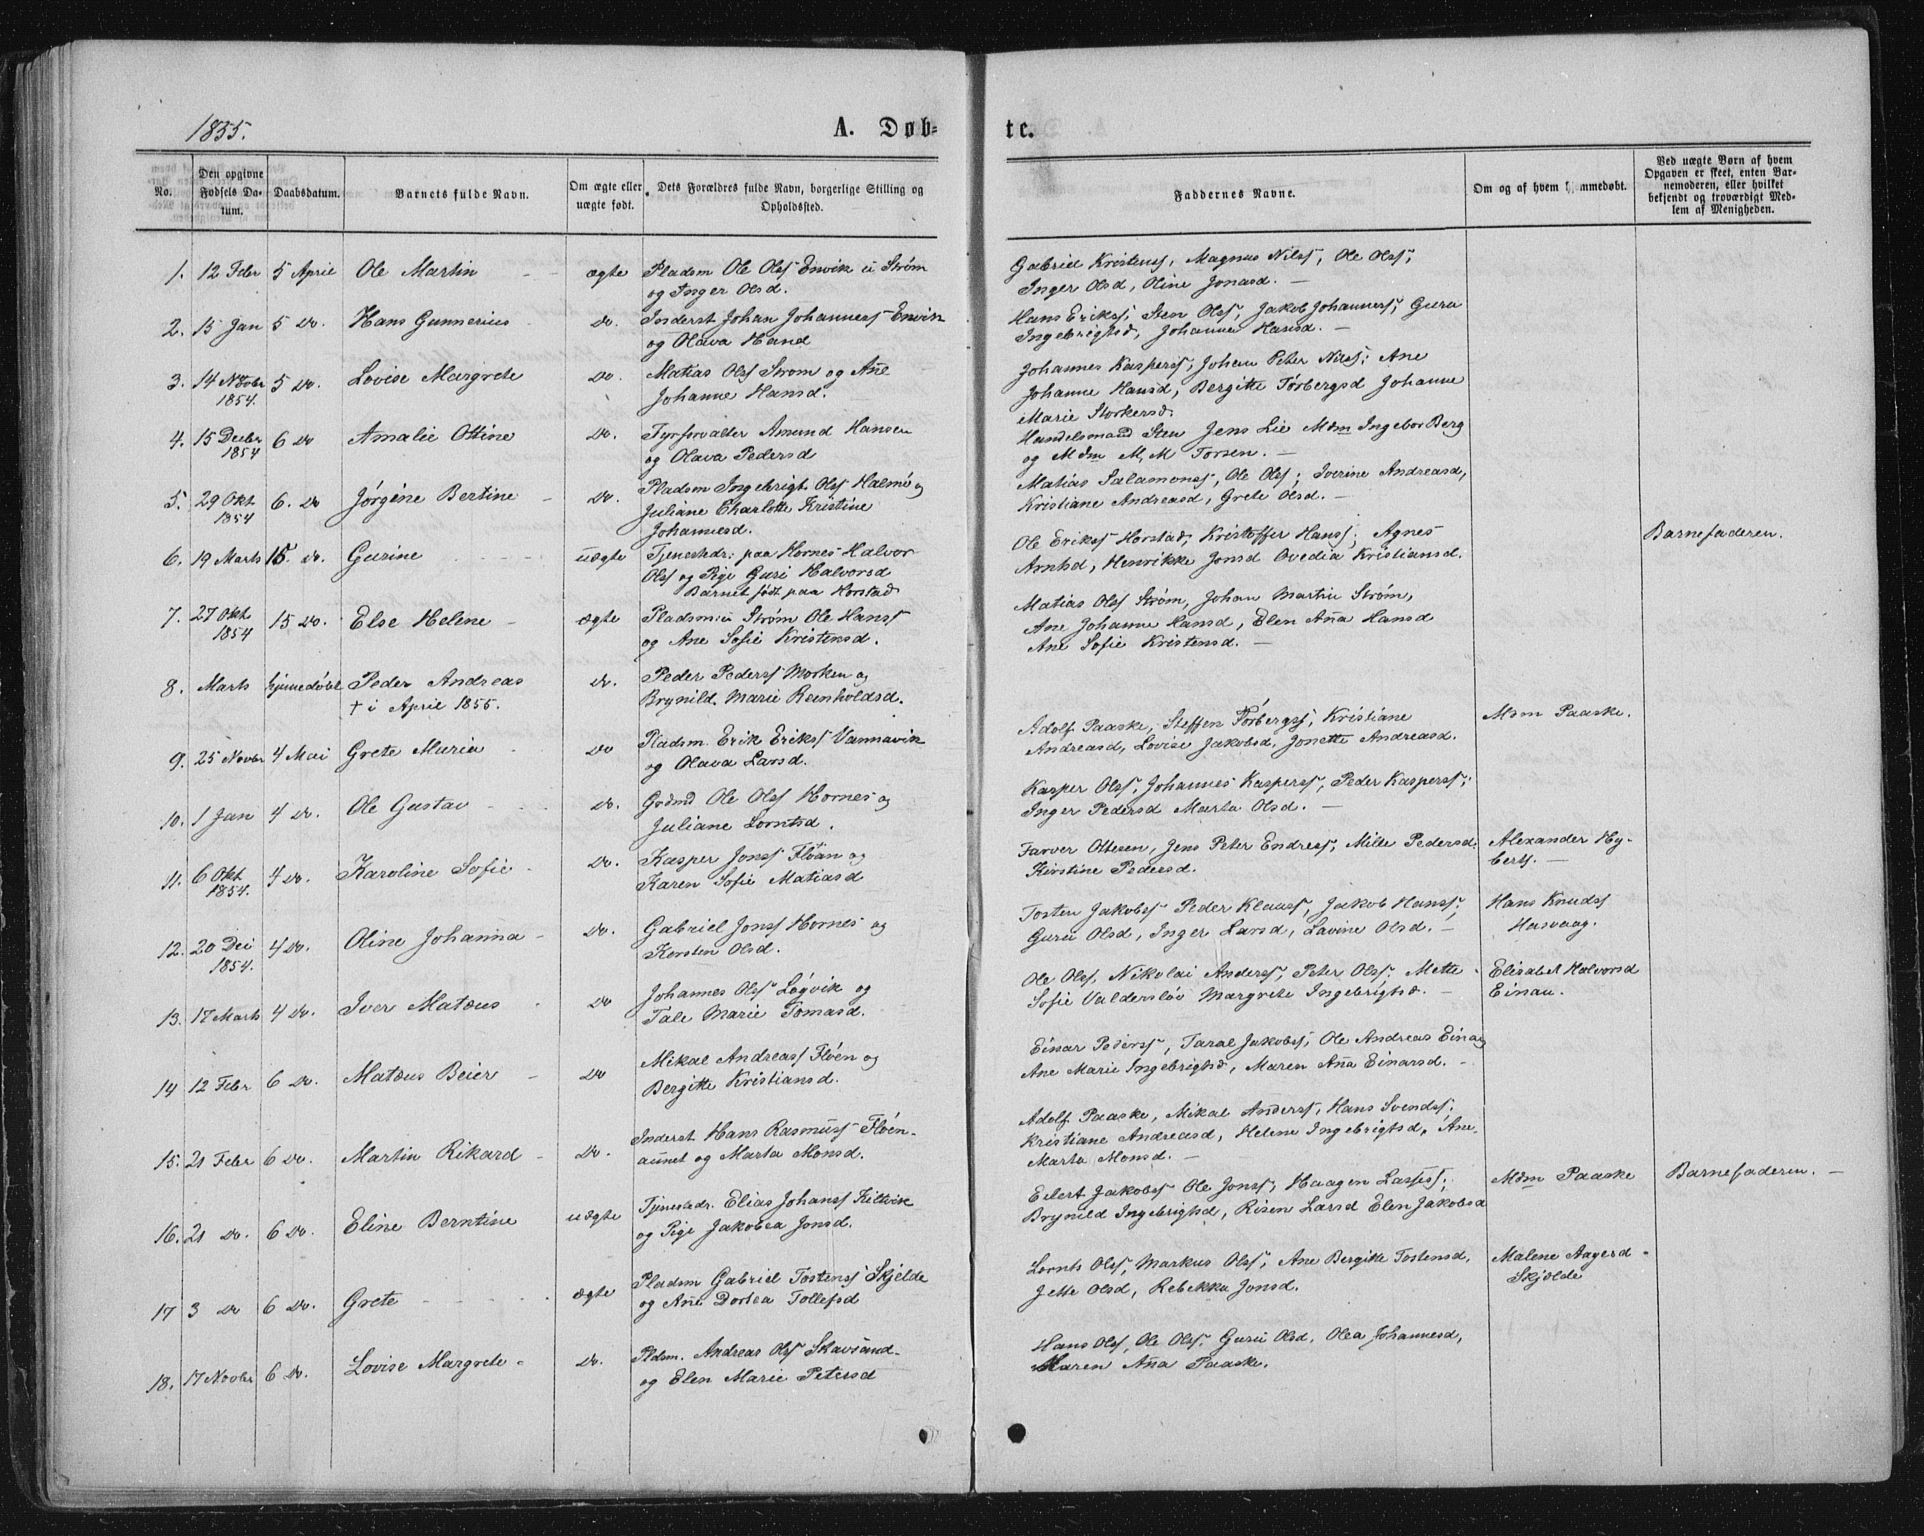 1855.
A. Døb-
te.
No.
Den opgivne Fødsels Datum.
Daabsdatum.
Barnets fulde Navn.
Om ægte eller uægte født.
Dets Forældres fulde Navn, borgerlige Stilling og Opholdssted.
Faddernes Navne.
Om og af hvem hjemmedøbt.
Ved uægte Børn af hvem Opgaven er skeet, enten Barnemoderen, eller hvilket bekjendt og troværdigt Medlem af Menigheden.
1. 12 Febr 5 April Ole Martin ægte Pladsm Ole Ols Envik u Strøm
og Inger Olsd.
Gabriel Kristens, Magnus Nils; Ole Ols;
Inger Olsd, Oline Jonasd. —
2. 15 Jan 5 do. Hans Gunnerius do. Inderst Johan Johannes Envik
og Olava Hansd
Hans Eriks; Sten Ols; Jakob Johannes; Guru
Ingebrigtsd, Johanna Hansd. —
3. 14 Novbr 1854. 5 do. Lovise Margrete do. Matias Ols Strøm og Ane
Johanne Hansd.
Johannes Kaspers; Johan Peter Nils; Ane
Johanne Hansd, Bergitte Torbergsd Johanne
Marie Storkersd.
4. 15 Decbr 1854 6 do Amalie Ottine do. Fyrforvalter Amund Hansen
og Olava Pedersd
Handelsmand Sten Jens Lie Mdm Ingebor Berg
og Mdm M, M Torsen. —
5. 29 Okt 1854 6. do Jørgine Bertine do. Pladsm Ingebrigt Ols Halmø og
Juliane Charlotte Kristine
Johannesd.
Matias Salamons, Ole Ols; Iverine Andreasd,
Kristiane Andreasd, Grete Olsd. —
6. 19 Marts 15. do. Gurine uægte Tjenestedr: paa Hornes Halvor
Ols og Pige Guri Halvorsd
Barnet født paa Horstad
Ole Eriks Horstad, Kristoffer Hans; Agnes
Arntsd, Henrikke Jonsd Ovedia Kristiansd.
Barnefaderen.
7. 27 Okt 1854 15 do. Else Helene ægte Pladsm u Strøm Ole Hans
og Ane Sofie Kristensd.
Matias Ols Strøm, Johan Martin Strøm,
Ane Johanne Hansd, Elen Ana Hansd
Ane Sofie Kristensd. —
8. Marts hjemedøbt Peder Andreas
† i April 1855.
do. Peder Peders Morken og
Brynild. Marie Reinholdsd.
9. 25 Novbr 4 Mai Grete Maria do Pladsm. Erik Eriks Vannavik
og Olava Larsd.
Adolf Paaske, Steffen Torbergs, Kristiane
Andreasd, Lovise Jakobsd, Jonette Andreasd.
Mdm Paaske.
10. 1 Jan 4 do. Ole Gustav do. Grdmd Ole Ols Hornes og
Juliane Lorntsd.
Kasper Ols; Johannes Kaspers, Peder Kaspers;
Inger Pedersd Marta Olsd. —
11. 6 Okt 1854. 4 do. Karoline Sofie do. Kasper Jons Fløan og
Karen Sofie Matiasd
Farver Ottesen, Jens Peter Endres; Mille Pedersd,
Kirstine Pedersd.
Alexander Hy-
berts. —
12. 20 Dec 1854. 4 do. Oline Johanna do. Gabriel Jons Hornes og
Korsten Olsd.
Tosten Jakobs Peder Klaus, Jakob Hans;
Guru Olsd, Inger Larsd, Lavine Olsd. —
Hans Knuds
Hasvaag.
13. 17 Marts 4 do. Iver Matæus do Johannes Ols Løgvik og
Tale Marie Tomasd.
Ole Ols, Nikolai Anders, Peter Ols; Mette
Sofie Valdersløv Margrete Ingebrigtsd. —
Elisabet Halvorsd
Einau.
14 12 Febr 6 do. Matæus Beier do Mikal Andreas Fløen og
Bergitte Kristiansd.
Einar Peders, Taral Jakobs; Ole Andreas Einag
Ane Marie Ingebrigtsd, Maren Ana Einarsd. —
15. 21 Febr 6 do. Martin Rikard do. Inderst Hans Rasmus Fløen-
aunet og Marta Monsd.
Adolf Paaske, Mikal Anders, Hans Svends;
Kristiane Andreasd, Helene Ingebrigtsd, Ane
Marta Monsd. —
16. 21 do. 6 do. Eline Berntine uægte Tjenestedr. Elias Johans Kilvik
og Pige Jakobea Jonsd.
Eilert Jakobs Ole Jons, Haagen Lasses;
Brynild Ingebrigtsd, Risen Larsd Elen Jakobsd
Mdm Paaske
Barnefaderen. —
17 3 do 6 do. Grete ægte Pladsm Gabriel Tostens Skjelde
og Ane Dortea Tollefsd
Lornts Ols, Markus Ols; Ane Bergitte Tostensd,
Jette Olsd, Rebekka Jonsd.
Malene Aagersd
Skjelde
18. 17 Novbr 6 do. Lovise Margrete do. Pldsm. Andreas Ols Skavsand
og Elen Marie Petersd
Hans Ols, Ole Ols. Guru Olsd, Olea Johannesd,
Maren Ana Paaske.